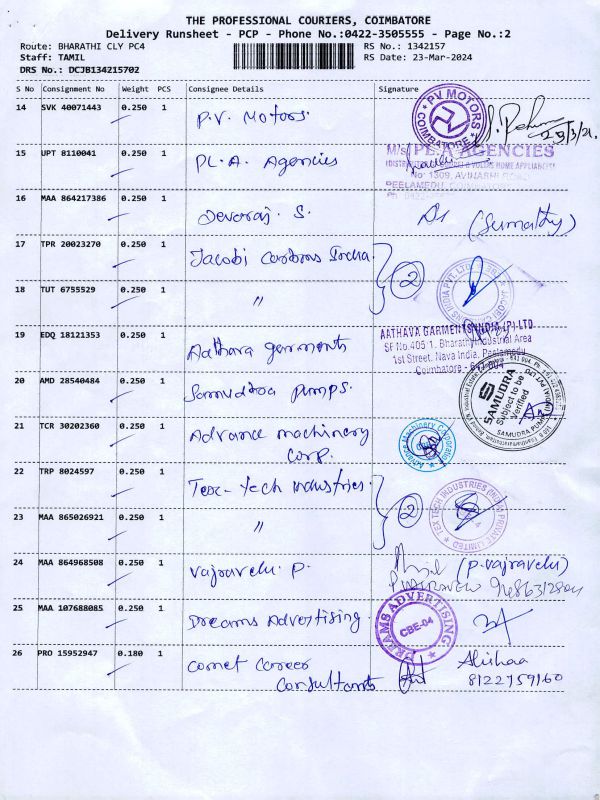 THE PROFESSIONAL COURIERS, COIMBATORE
Delivery Runsheet - PCP - Phone No.:0422-3505555 - Page No.:2
Route: BHARATHI CLY PC4
Staff: TAMIL
DRS No.: DCJB134215702
RS No.: 1342157
RS Date: 23-Mar-2024
S No Consignment No Weight PCS Consignee Details Signature
14 SVK 40071443 0.250 1 P.V. Motors.
PV MOTORS
COIMBATORE
15 UPT 8110041 0.250 1 PL.A. Agencies
AGENCIES
No 1309, AVINASHI ROAD
PEELAMEDU,
16 MAA 864217386 0.250 1 Devaraj. S. (Sumathy)
17 TPR 20023270 0.250 1 Jacobi Carbons India. 2
18 TUT 6755529 0.250 1 "
19 EDQ 18121353 0.250 1 Aathava garments
AATHAVA GARMENTS INDIA (P) LTD
SF No.405/1, Bharathi Industrial Area
1st Street, Nava India, Peelamedu
Coimbatore - 641 004
20 AMD 28540484 0.250 1 Samudra pumps.
SAMUDRA
Subject to be
Verified
21 TCR 30202360 0.250 1 Advance machinery
corp.
Advance Machinery Corporation
22 TRP 8024597 0.250 1 Tex-tech industries. 2
TEX TECH INDUSTRIES (INDIA) PRIVATE LIMITED
23 MAA 865026921 0.250 1 "
24 MAA 864968508 0.250 1 Vajravelu. P. (P. Vajravelu)
25 MAA 107688085 0.250 1 Dreams Advertising
DREAMS ADVERTISING
CBE-04
26 PRO 15952947 0.180 1 Comet Career
Consultants
8122759160